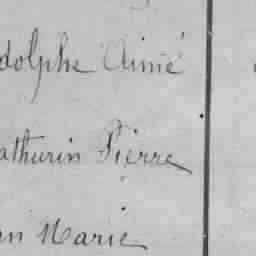 dolphe Aimé
athurin Pierre
an Marie